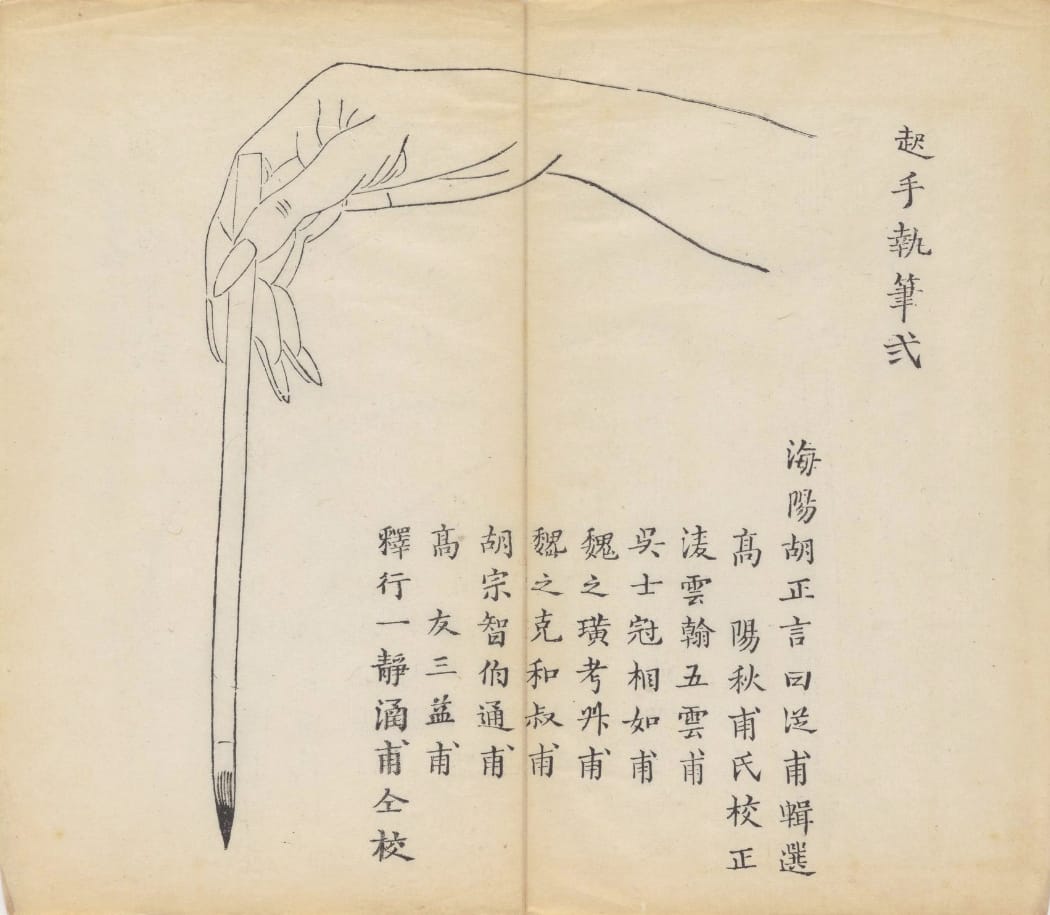 起手執筆弍
海陽胡正言曰從甫輯選
高 陽秋甫氏校正
淩雲翰五雲甫
吳士冠相如甫
魏之璜考叔甫
魏之克和叔甫
胡宗智伯通甫
高 友三益甫
釋行一靜涵甫仝校